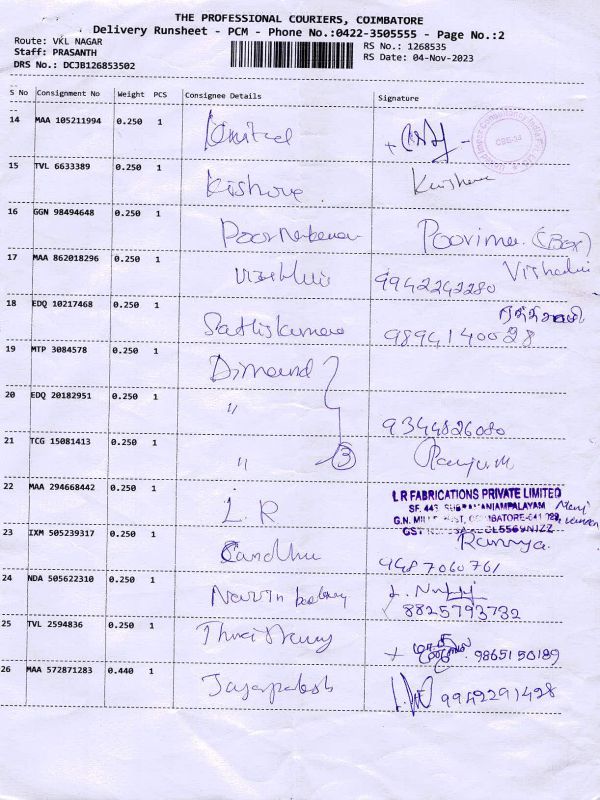 THE PROFESSIONAL COURIERS, COIMBATORE
Delivery Runsheet - PCM - Phone No.:0422-3505555 - Page No.:2
Route: VKL NAGAR
Staff: PRASANTH
DRS No.: DCJB126853502
RS No.: 1268535
RS Date: 04-Nov-2023
S No Consignment No Weight PCS Consignee Details Signature
14 MAA 105211994 0.250 1
15 TVL 6633389 0.250 1 Kishore Kishore
16 GGN 98494648 0.250 1 Poorima (Box)
17 MAA 862018296 0.250 1 9942242280
18 EDQ 10217468 0.250 1 Sathiskumar 9894140028
19 MTP 3084578 0.250 1 Dimound
20 EDQ 20182951 0.250 1 " 9344826080
21 TCG 15081413 0.250 1 " 3
22 MAA 294668442 0.250 1 L R
L R FABRICATIONS PRIVATE LIMITED
SF. 443
COIMBATORE-641
23 IXM 505239317 0.250 1 Sandhu Ramya.
24 NDA 505622310 0.250 1 Navin 8825793732
25 TVL 2594836 0.250 1 9865150189
26 MAA 572871283 0.440 1 Jayaprakash 9942291428